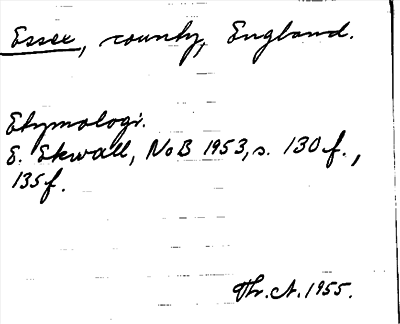 Essex, county, England.
Etymologi.
E. Ekwall, NoB 1953, s. 130 f.,
135 f.
Thr. A. 1955.